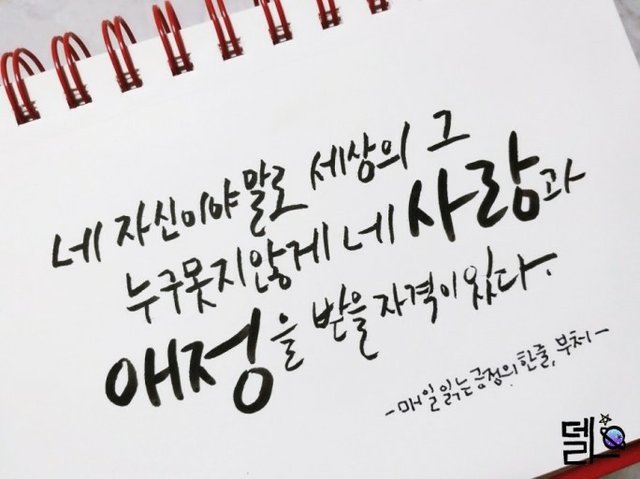 네 자신이야말로 세상의 그
누구못지않게 네 사랑과
애정을 받을 자격이 있다.
- 매일 읽는 긍정의 한줄, 부처 -
델리